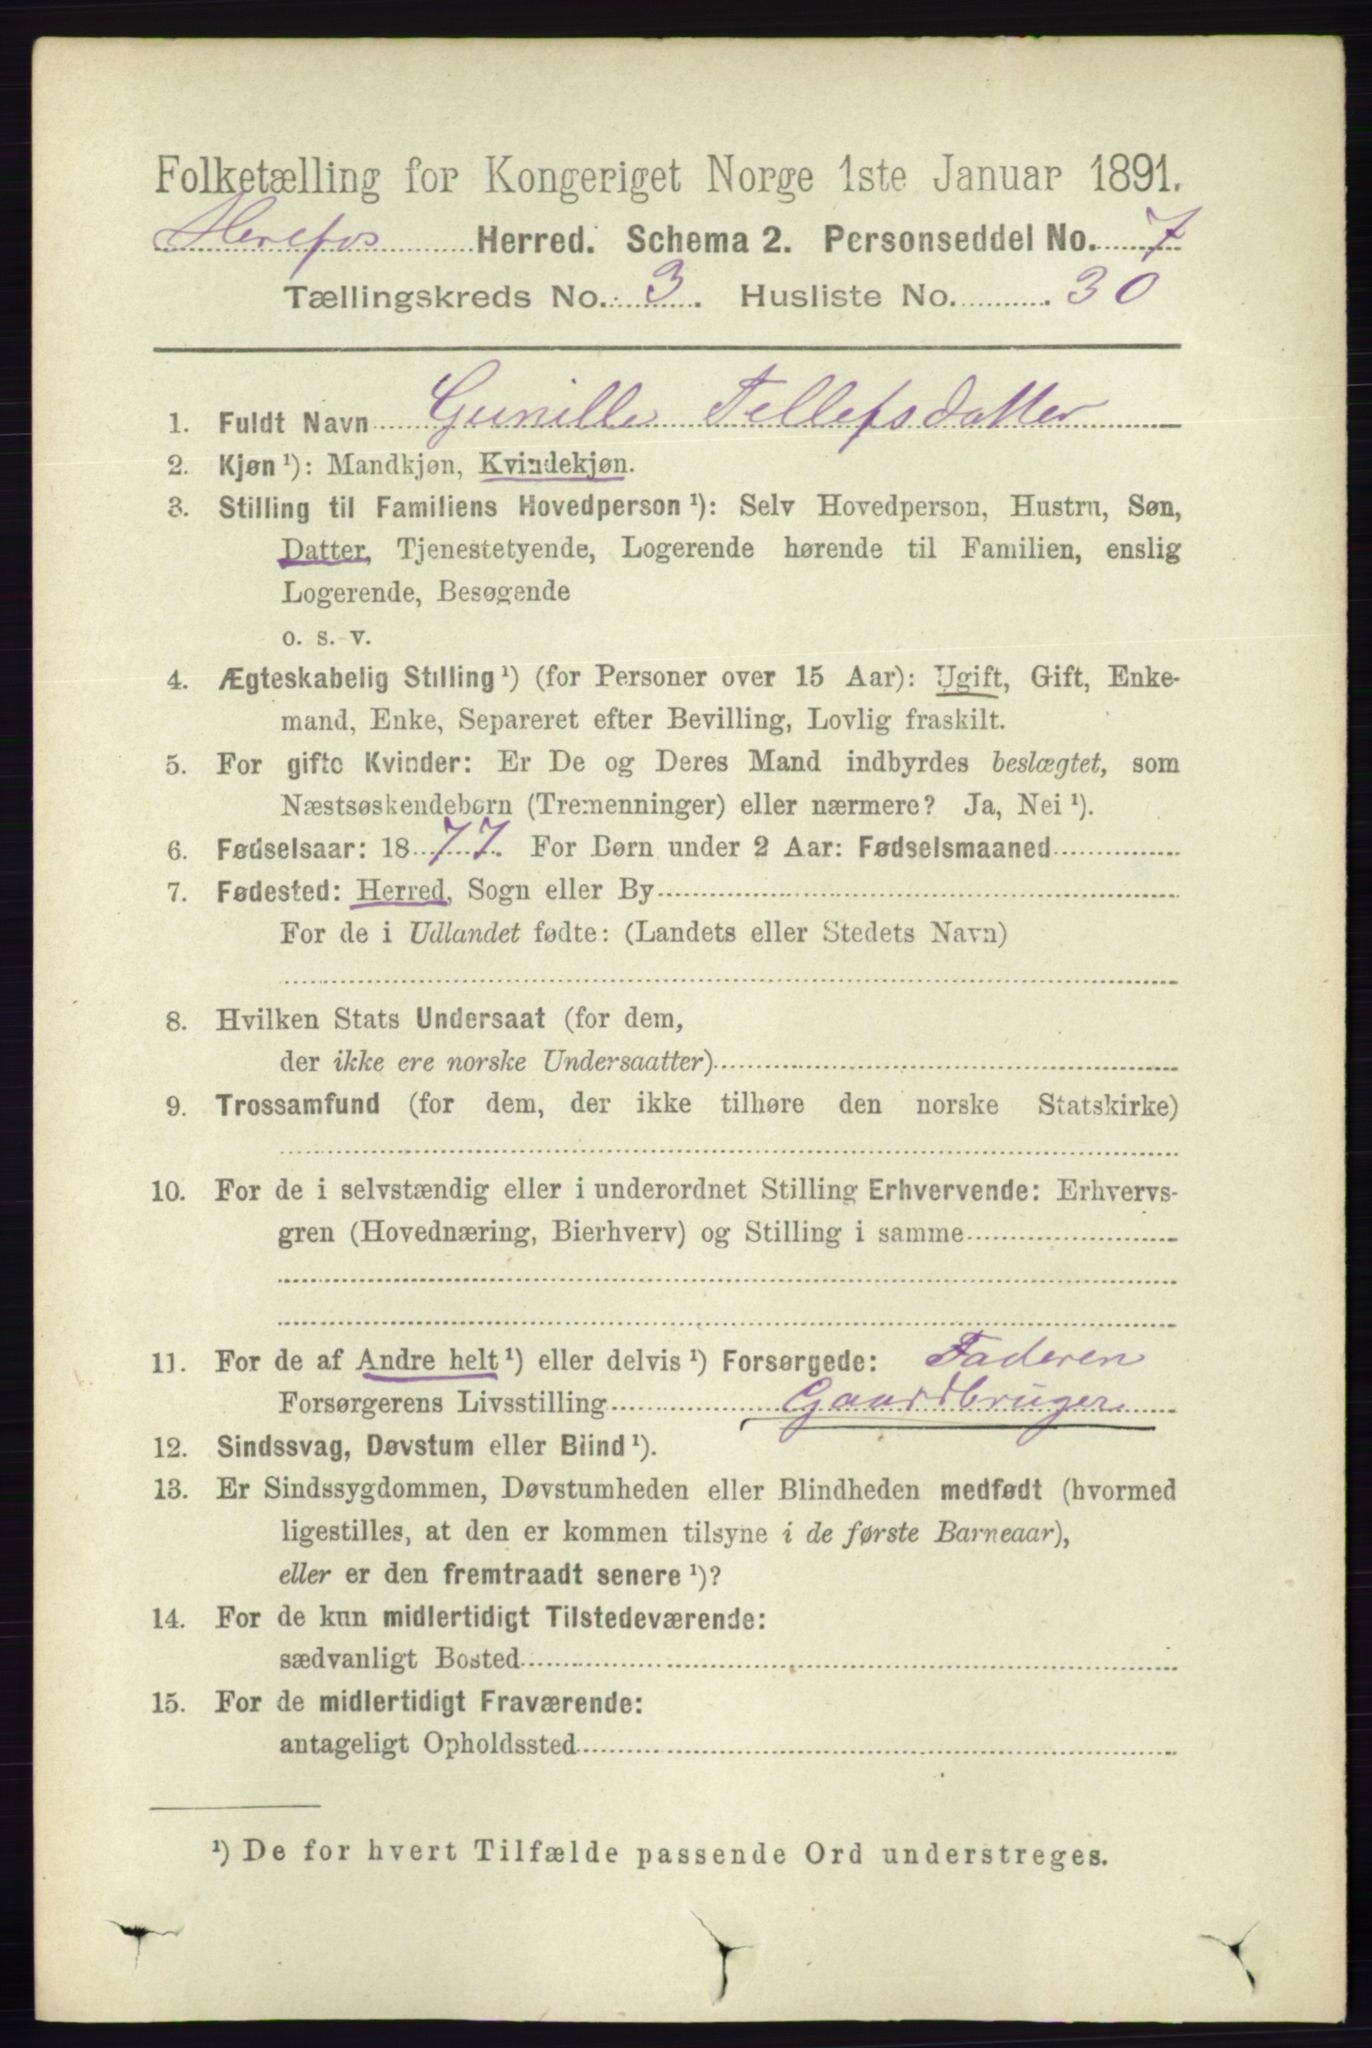 Folketælling for Kongeriget Norge 1ste Januar 1891.
Herefos Herred. Schema 2. Personseddel No. 7
Tællingskreds No. 3. Husliste No. 30
1. Fuldt Navn Gunille Tellefsdatter
2. Kjøn ¹): Mandkjøn, Kvindekjøn.
3. Stilling til Familiens Hovedperson ¹): Selv Hovedperson, Hustru, Søn,
Datter, Tjenestetyende, Logerende hørende til Familien, enslig
Logerende, Besøgende
o. s. v.
4. Ægteskabelig Stilling ¹) (for Personer over 15 Aar): Ugift, Gift, Enke-
mand, Enke, Separeret efter Bevilling, Lovlig fraskilt.
5. For gifte Kvinder: Er De og Deres Mand indbyrdes beslægtet, som
Næstsøskendebørn (Tremenninger) eller nærmere? Ja, Nei ¹).
6. Fødselsaar: 1877. For Børn under 2 Aar: Fødselsmaaned
7. Fødested: Herred, Sogn eller By
For de i Udlandet fødte: (Landets eller Stedets Navn)
8. Hvilken Stats Undersaat (for dem,
der ikke ere norske Undersaatter)
9. Trossamfund (for dem, der ikke tilhøre den norske Statskirke)
10. For de i selvstændig eller i underordnet Stilling Erhvervende: Erhvervs-
gren (Hovednæring, Bierhverv) og Stilling i samme
11. For de af Andre helt ¹) eller delvis ¹) Forsørgede: Faderen
Forsørgerens Livsstilling Gaardbruger.
12. Sindssvag, Døvstum eller Blind ¹).
13. Er Sindssygdommen, Døvstumheden eller Blindheden medfødt (hvormed
ligestilles, at den er kommen tilsyne i de første Barneaar),
eller er den fremtraadt senere ¹)?
14. For de kun midlertidigt Tilstedeværende:
sædvanligt Bosted
15. For de midlertidigt Fraværende:
antageligt Opholdssted
¹) De for hvert Tilfælde passende Ord understreges.